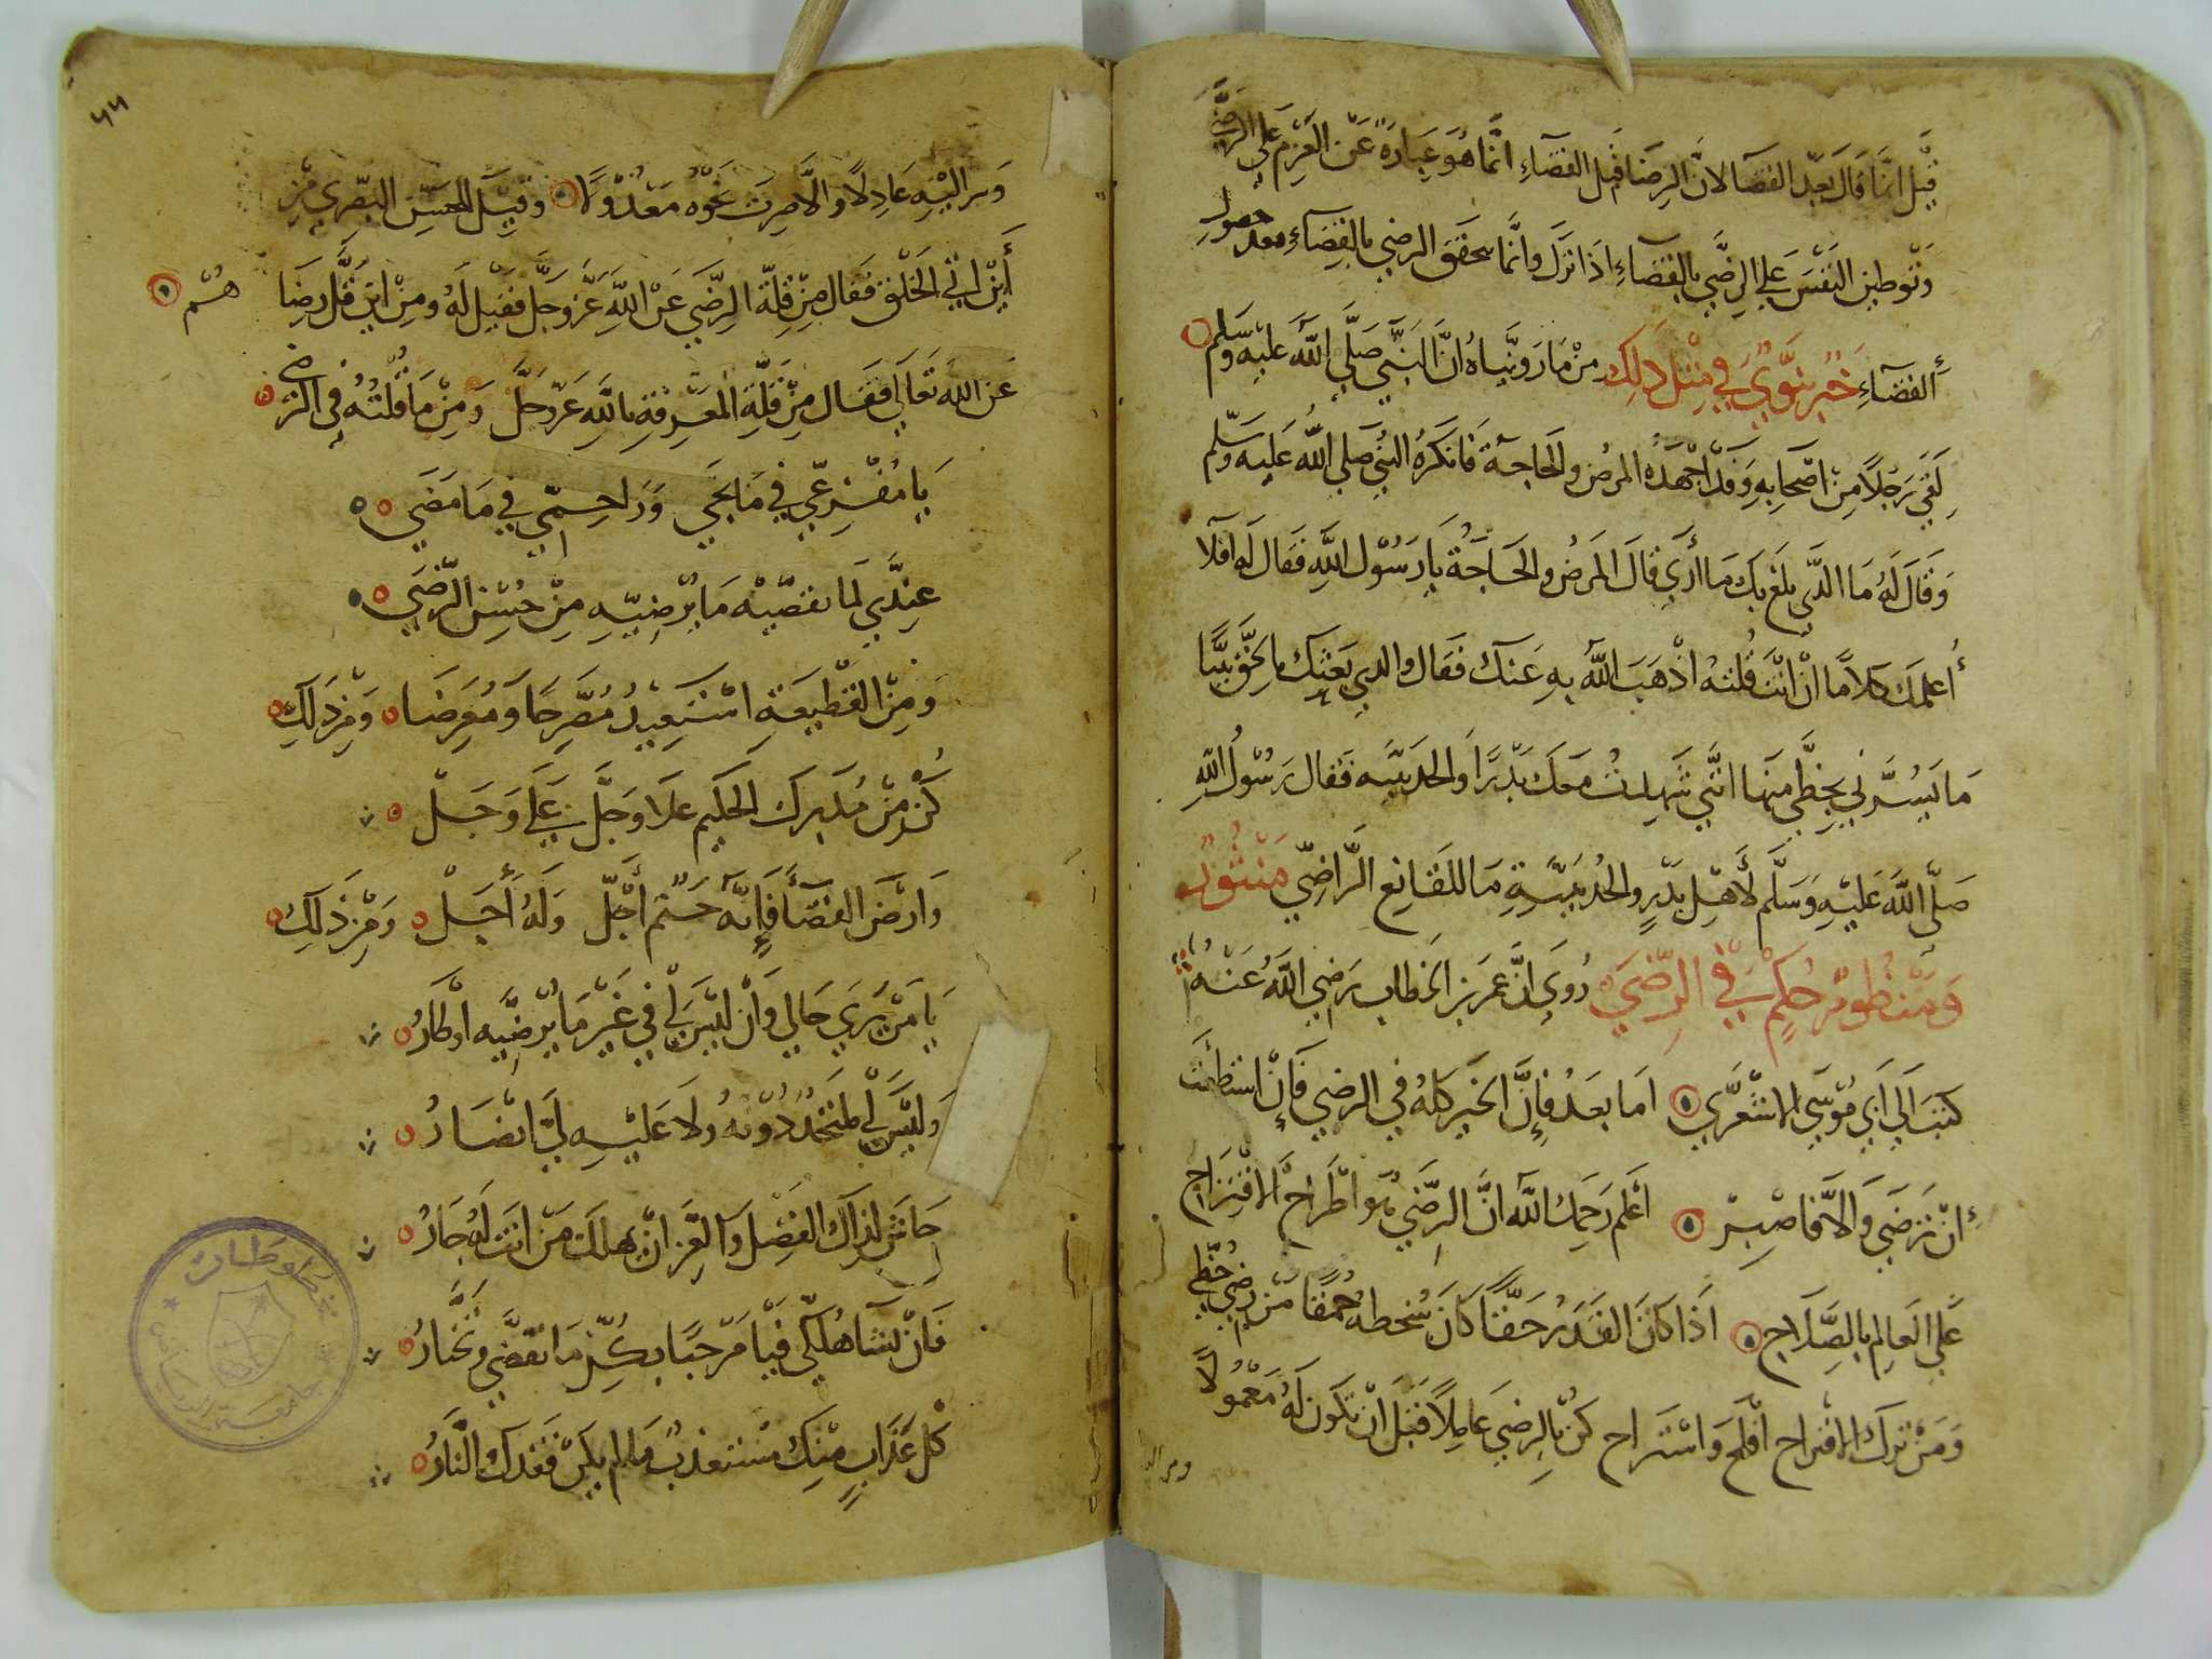 قيل انما قال بعد القضا لان الرضا قبل القضاء انما هو عبارة عن العزم على الرضى
وتوطين النفس على الرضى بالقضاء اذا نزل وانما يتحقق الرضى بالقضاء بعد حصول
القضاء خبر نبوي في مثل ذلك من ما رويناه ان النبي صلى الله عليه وسلم
لقي رجلا من اصحابه وقد اجهده المرض والحاجة فانكره النبي صلى الله عليه وسلم
وقال له ما الذي بلغ بك ما ارى قال المرض والحاجة يا رسول الله فقال له افلا
أعلمك كلاما ان انت قلته اذهب الله به عنك فقال والذي بعثك بالحق نبيا
ما يسرني بحظي منها انني شهدت معك بدرا والحديبيه فقال رسول الله
صلى الله عليه وسلم لأهل بدر والحديبية ما للقانع الراضي منثور
ومنظوم حكم في الرضى روي ان عمر بن الخطاب رضي الله عنه
كتب الى ابي موسى الاشعري اما بعد فإن الخير كله في الرضى فإن استطعت
ان ترضى والا فاصبر اعلم رحمك الله ان الرضى هو اطراح الاقتراح
على العالم بالصلاح اذا كان القدر حقا كان سخطه حمقا من رضي حظي
ومن ترك الاقتراح افلح واستراح كن بالرضى عاملا قبل ان تكون له معمولا
وسر اليه
٤٤
وسر اليه عادلا والا صرت نحوه معدولا وقيل للحسن البصري من
أين اتي الخلق فقال من قلة الرضى عن الله عز وجل فقيل له ومن اين قل رضاهم
عن الله تعالى فقال من قلة المعرفة بالله عز وجل ومن ما قلته في الرضى
يا مفزعي في ما يجي وراحمي في ما مضى
عندي لما تقضيه ما يرضيه من حسن الرضى
ومن القطيعة استعيذ مصرحا ومعرضا ومن ذلك
كن من مدبرك الحكيم علا وجل على وجل
وارض القضا فإنه حتم أجل وله أجل ومن ذلك
يا من يرى حالي وان ليس لي في غير ما يرضيه اوطار
وليس لي ملتحد دونه ولا عليه لي انصار
حاشى لذاك الفضل والعز ان يهلك من انت له جار
فان تشا هلكي فيا مرحبا بكل ما تقضي وتختار
كل عذاب منك مستعذب ما لم يكن فقدك والنار
مخطوطات
جامعة الرياض